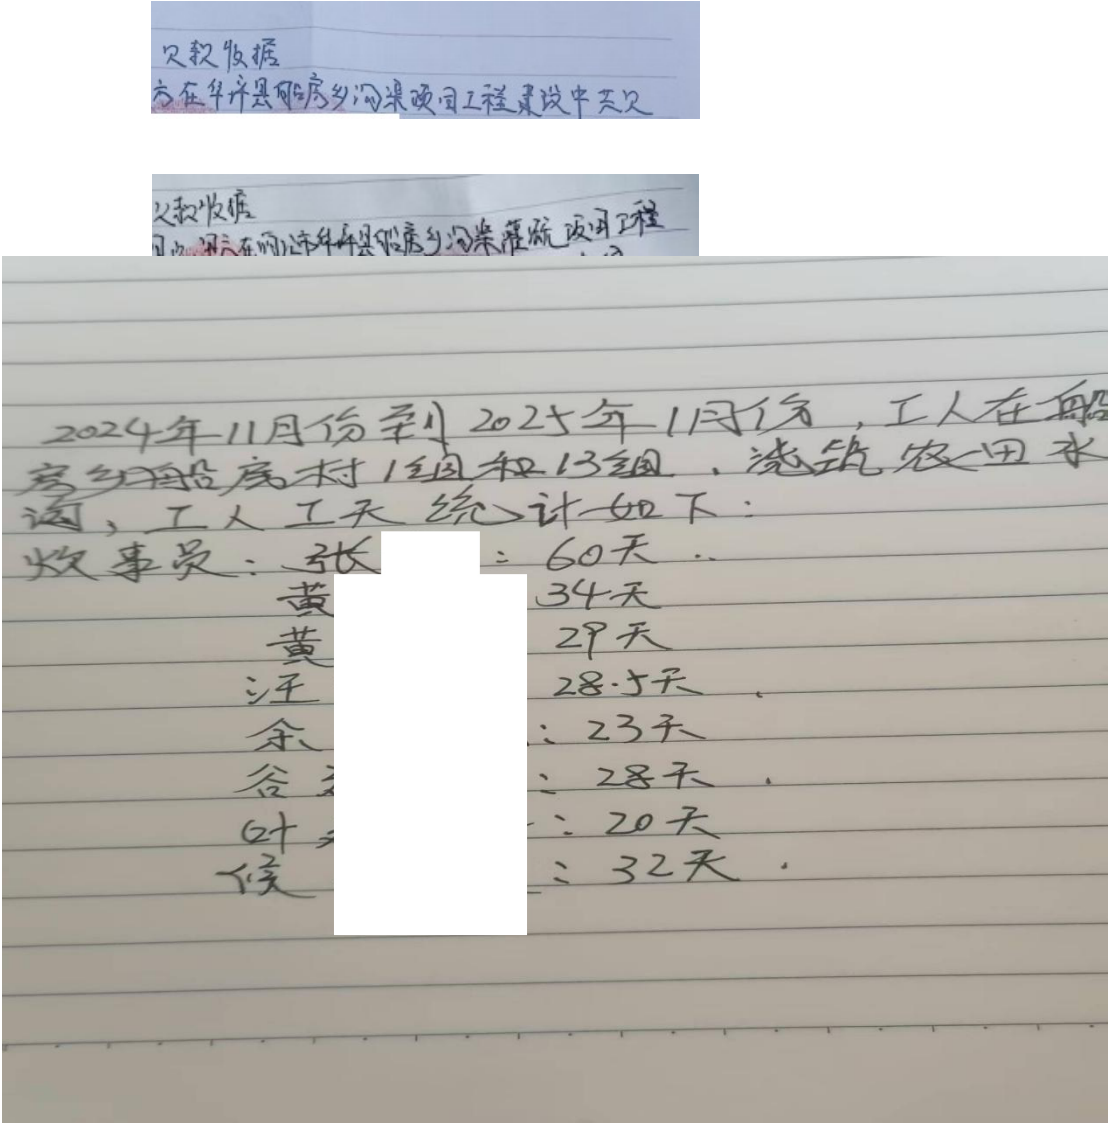 欠款收据
方在华坪县船房乡沟渠项目工程建设中共欠
欠款收据
方在丽江市华坪县船房乡沟渠灌溉项目工程
2024年11月份到2025年1月份,工人在船
房乡船房村1组和13组,浇筑农田水
沟,工人工天统计如下:
炊事员:张 :60天
黄 34天
黄 29天
汪 28.5天
余 :23天
谷 :28天
叶 :20天
候 :32天